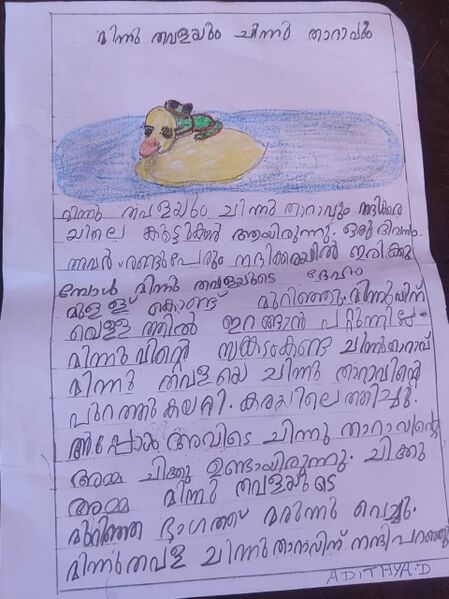 മിന്നു തവളയും ചിന്നു താറാവും
മിന്നു തവളയും ചിന്നു താറാവും നദിക്കര
യിലെ കൂട്ടുകാർ ആയിരുന്നു. ഒരു ദിവസം
അവർ രണ്ടുപേരും നദിക്കരയിൽ ഇരിക്കു
മ്പോൾ മിന്നു തവളയുടെ ദേഹം
മുള്ള് കൊണ്ട് മുറിഞ്ഞു. മിന്നുവിന്
വെള്ളത്തിൽ ഇറങ്ങാൻ പറ്റുന്നില്ല.
മിന്നുവിന്റെ സങ്കടംകണ്ട ചിന്നുതാറാവ്
മിന്നു തവളയെ ചിന്നു താറാവിന്റെ
പുറത്തു കയറ്റി. കരയിലെത്തിച്ചു.
അപ്പോൾ അവിടെ ചിന്നു താറാവിന്റെ
അമ്മ ചിക്കു ഉണ്ടായിരുന്നു. ചിക്കു
അമ്മ മിന്നു തവളയുടെ
മുറിഞ്ഞ ഭാഗത്ത് മരുന്നു വെച്ചു.
മിന്നുതവള ചിന്നുതാറാവിന് നന്ദി പറഞ്ഞു
ADITHYA.D